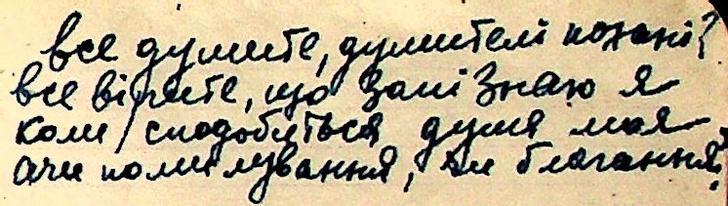 все душите, душителі кохані?
все вірите, що запізнаю я
коли сподобиться душа моя
ачи помилування, чи благання?